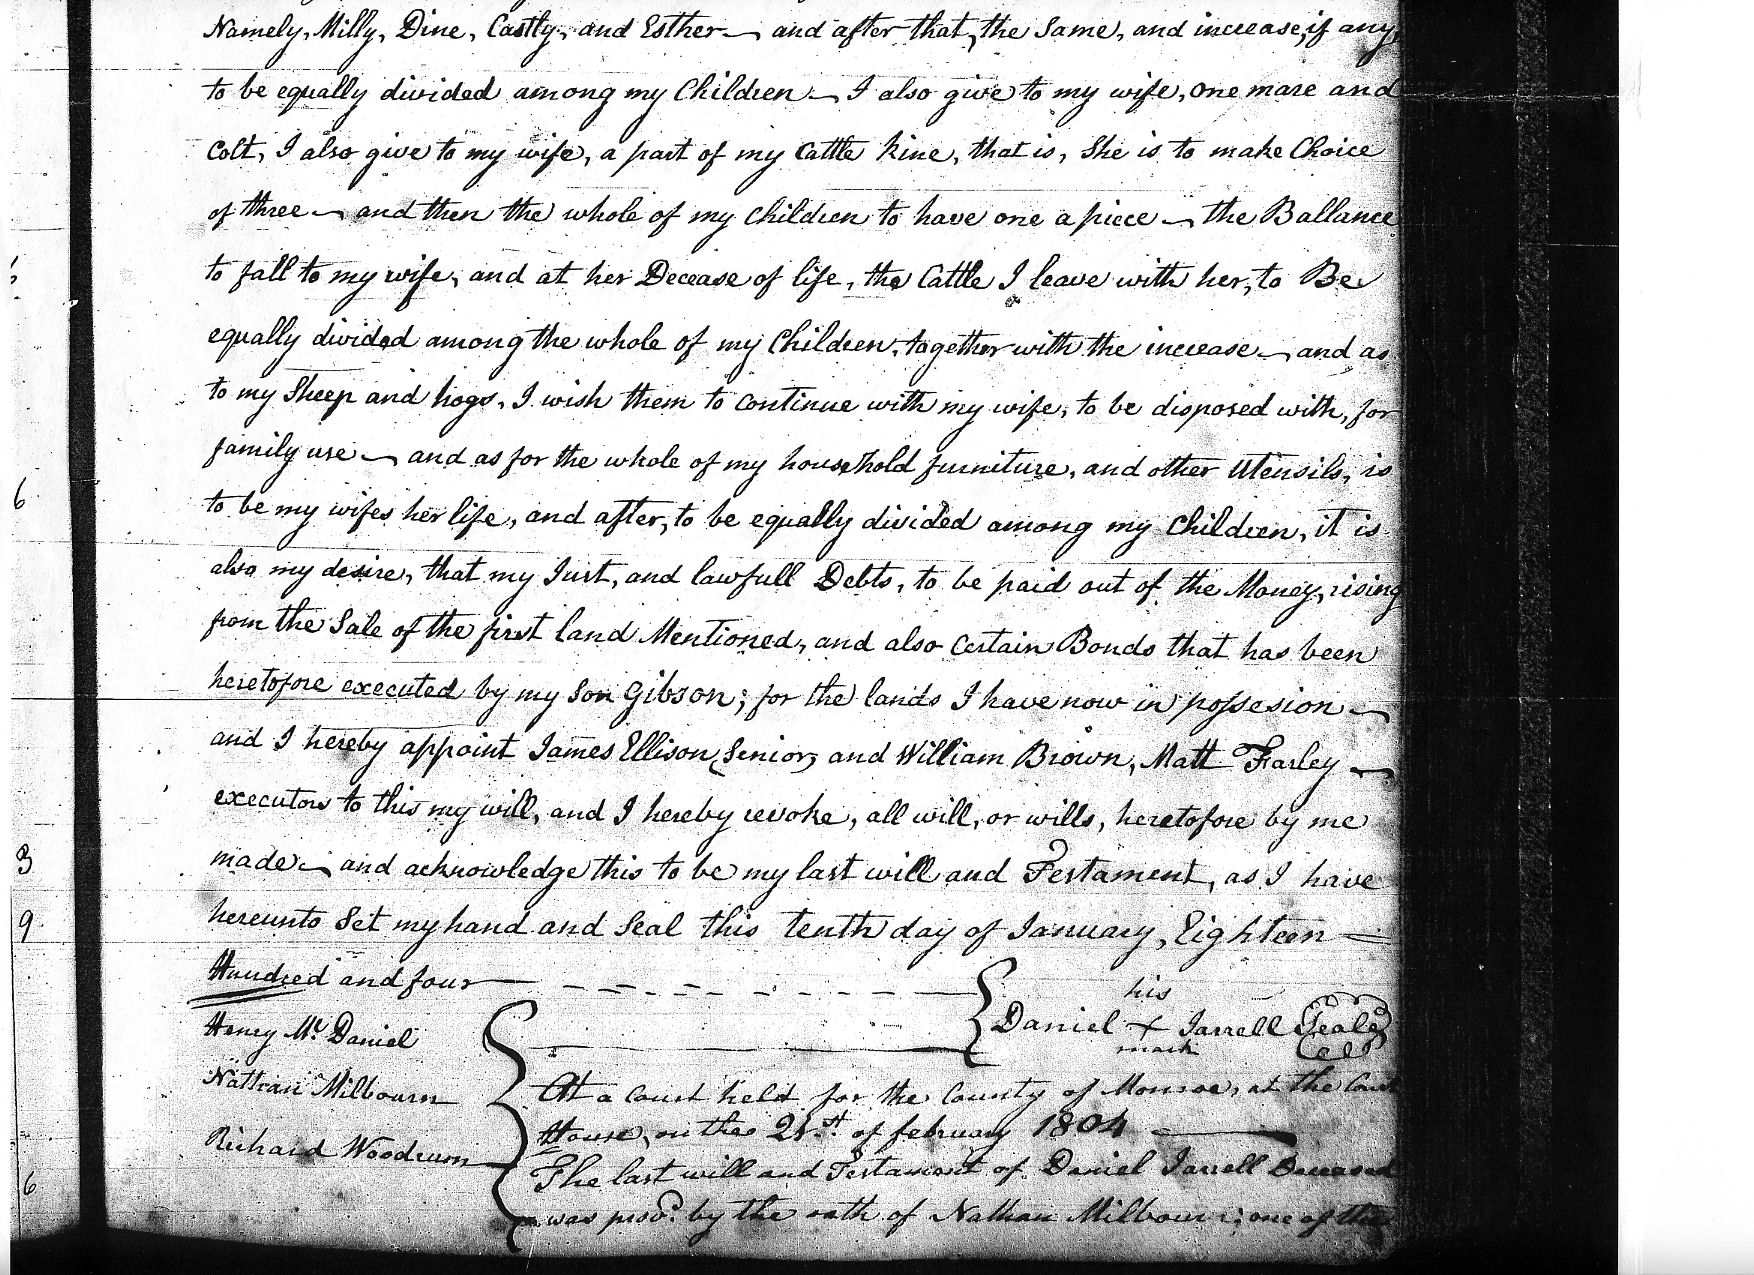 Namely, Milly, Dine, Castly, and Esther — and after that, the Same, and increase, if any,
to be equally divided among my Children — I also give to my wife, one mare and
Colt, I also give to my wife, a part of my Cattle kine, that is, She is to make Choice
of three — and then the whole of my children to have one a piece — the Ballance
to fall to my wife, and at her Decease of life, the Cattle I leave with her, to Be
equally divided among the whole of my Children, together with the increase — and as
to my Sheep and hogs, I wish them to continue with my wife, to be disposed with, for
family use — and as for the whole of my household furniture, and other utensils, is
to be my wifes her life, and after, to be equally divided among my Children, it is
also my desire, that my Just, and lawfull Debts, to be paid out of the Money, rising
from the Sale of the first land Mentioned, and also Certain Bonds that has been
heretofore executed by my Son Gibson; for the lands I have now in possesion —
and I hereby appoint James Ellison, Senior, and William Brown, Matt Farley —
executors to this my will, and I hereby revoke, all will, or wills, heretofore by me
made — and acknowledge this to be my last will and Testament, as I have
hereunto Set my hand and Seal this tenth day of January, Eighteen =
Hundred and four
his
Daniel + Jarrell Seal
mark
Henry Mc. Daniel
Nathan Milbourn
Richard Woodrum
At a Court held for the County of Monroe, at the Court
House, on the 21st. of february 1804
The last will and Testament of Daniel Jarrell Deceased
was provd. by the oath of Nathan Milbourn; one of the
6
3
9
6